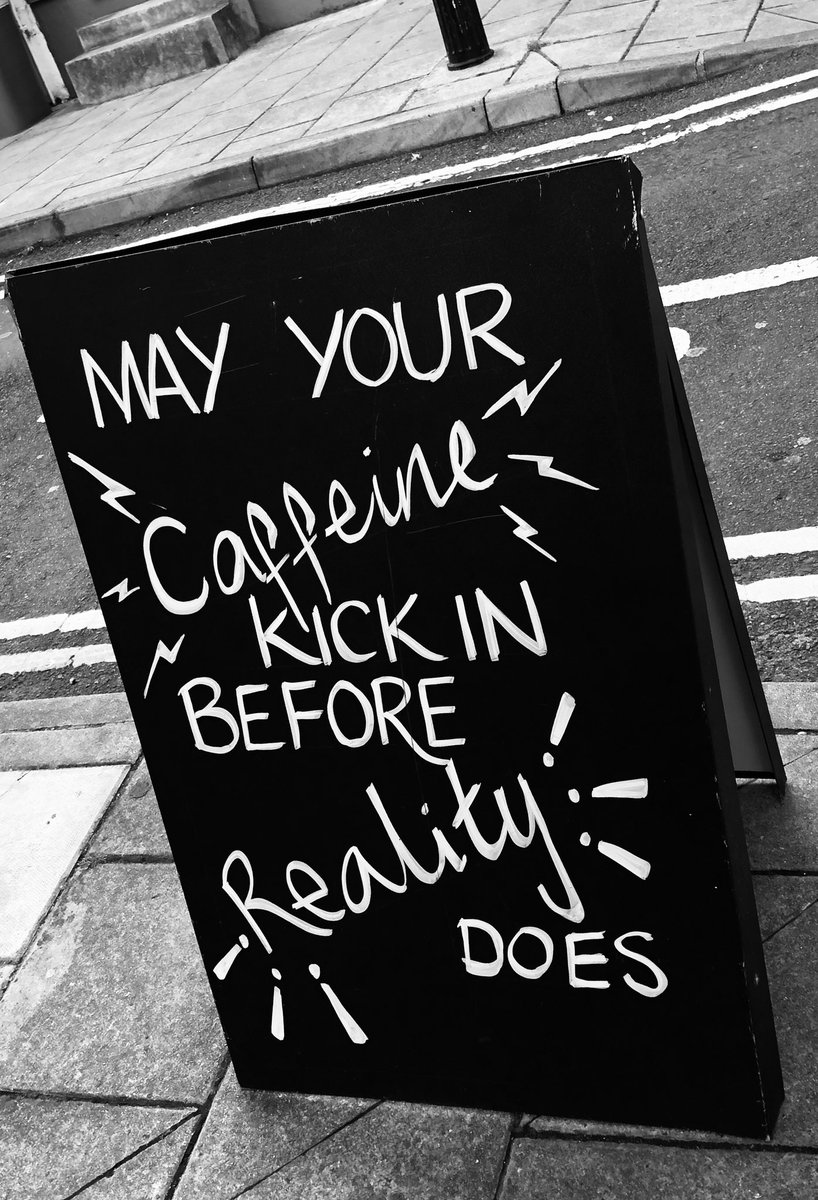 MAY YOUR
Caffeine
KICK IN
BEFORE
Reality
DOES